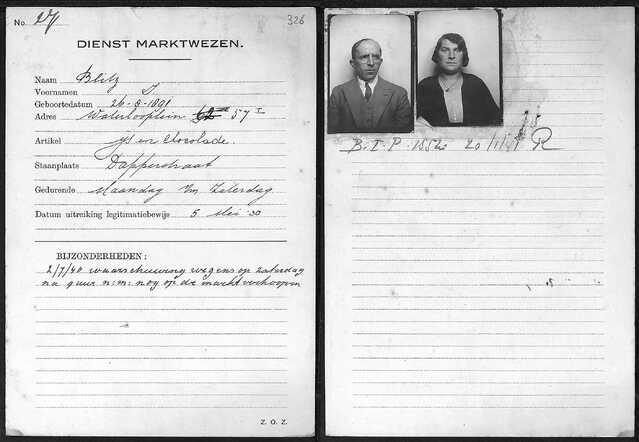 No. 27 326
DIENST MARKTWEZEN.
Naam Blitz
Voornamen I
Geboortedatum 26-8-1891
Adres Waterlooplein 62 57 I
Artikel ijs en Chocolade.
Staanplaats Dapperstraat
Gedurende Maandag t/m Zaterdag
Datum uitreiking legitimatiebewijs 5 Mei '30
BIJZONDERHEDEN:
2/7/40 waarschuwing wegens op Zaterdag
na 9 uur n:m: nog op de markt verkoopen
Z. O. Z.
B.T.P. 1852 20/1/41 R